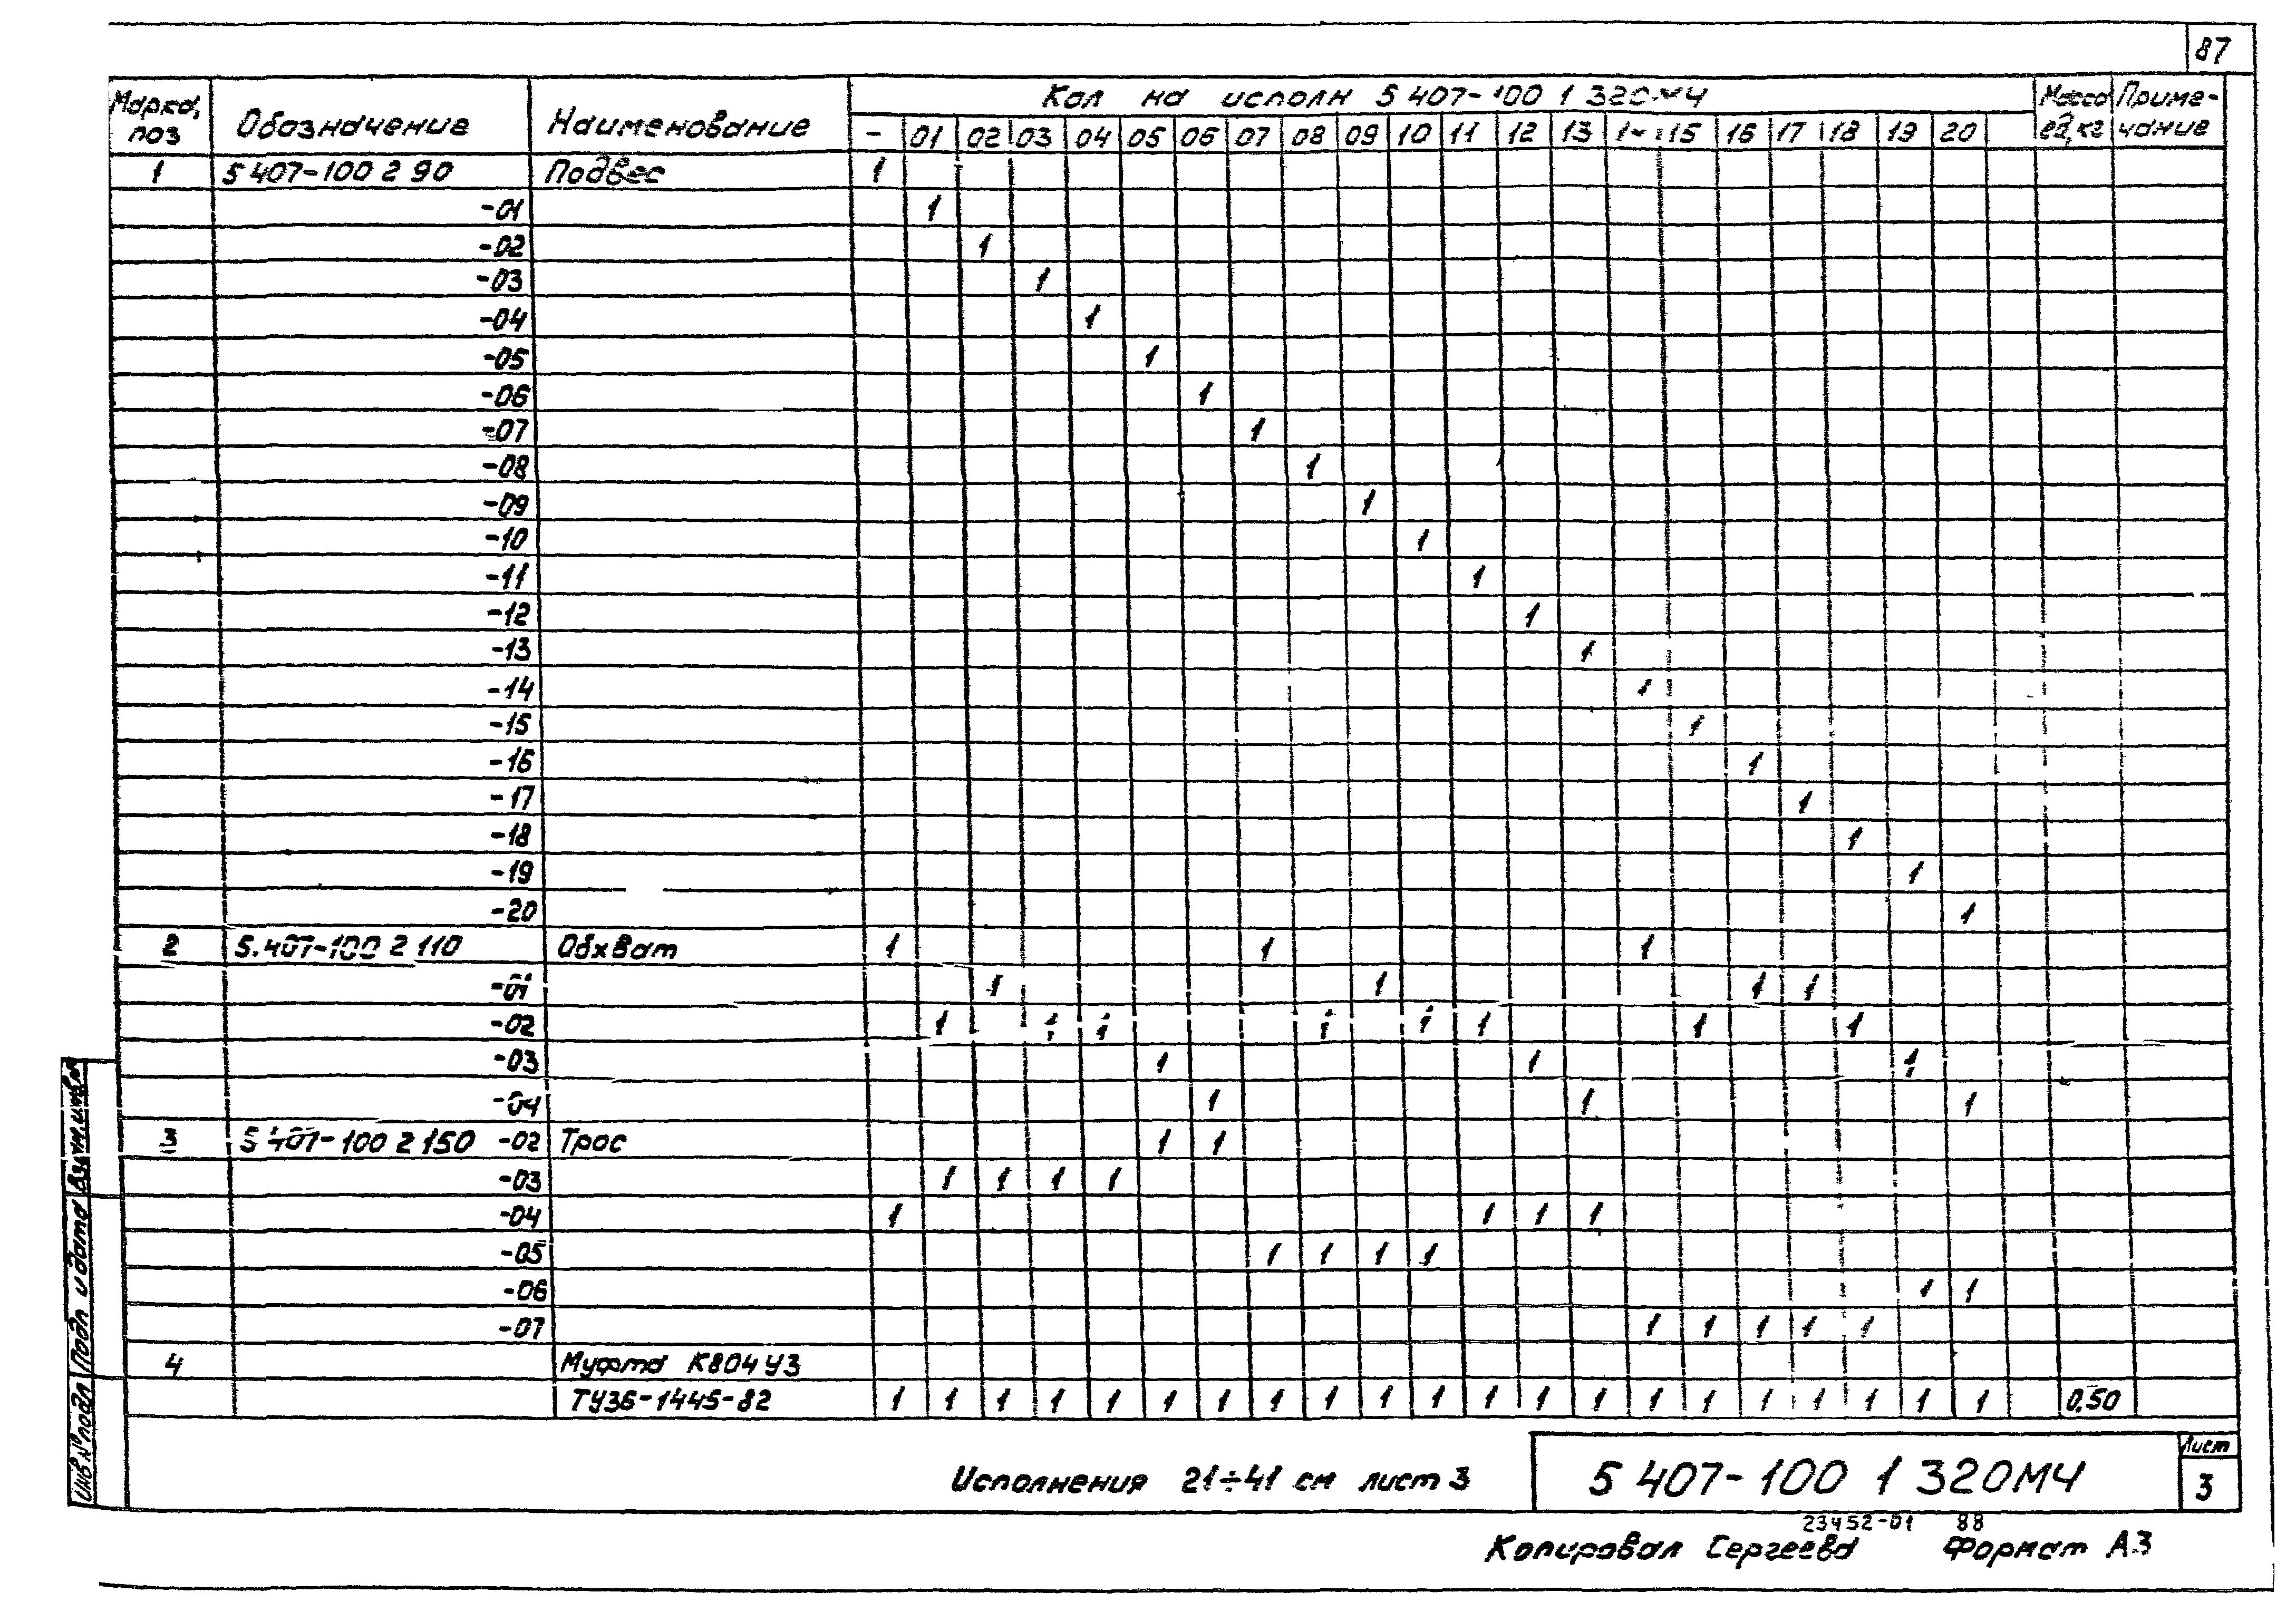 87
Марка, поз Обозначение Наименование Кол на исполн 5 407-100 1 320МЧ Масса ед, кг Приме-чание
- 01 02 03 04 05 06 07 08 09 10 11 12 13 15 16 17 18 19 20
1 5 407-100 2 90 Подвес 1
-01 1
-02 1
-03 1
-04 1
-05 1
-06 1
-07 1
-08 1
-09 1
-10 1
-11 1
-12 1
-13 1
-14 1
-15 1
-16 1
-17 1
-18 1
-19 1
-20 1
2 5.407-100 2 110 Обхват 1 1 1
-01 1 1 1 1
-02 1 1 1 1 1 1 1 1
-03 1 1 1
-04 1 1 1
3 5 407-100 2 150 -02 Трос 1 1
-03 1 1 1 1
-04 1 1 1 1
-05 1 1 1 1
-06 1 1
-07 1 1 1 1 1
4 Муфта К804У3
ТУ36-1445-82 1 1 1 1 1 1 1 1 1 1 1 1 1 1 1 1 1 1 1 1 1 0,50
Инв.№подл Подп и дата Взам.инв.№
Исполнения 21÷41 см лист 3
5 407-100 1 320МЧ
Лист
3
23452-01 88
Копировал Сергеева Формат А3